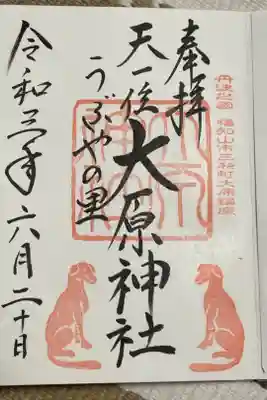 奉拝
丹波之国 福知山市三和町大原鎮座
天一位
大原神社
うぶやの里
令和三年六月二十日